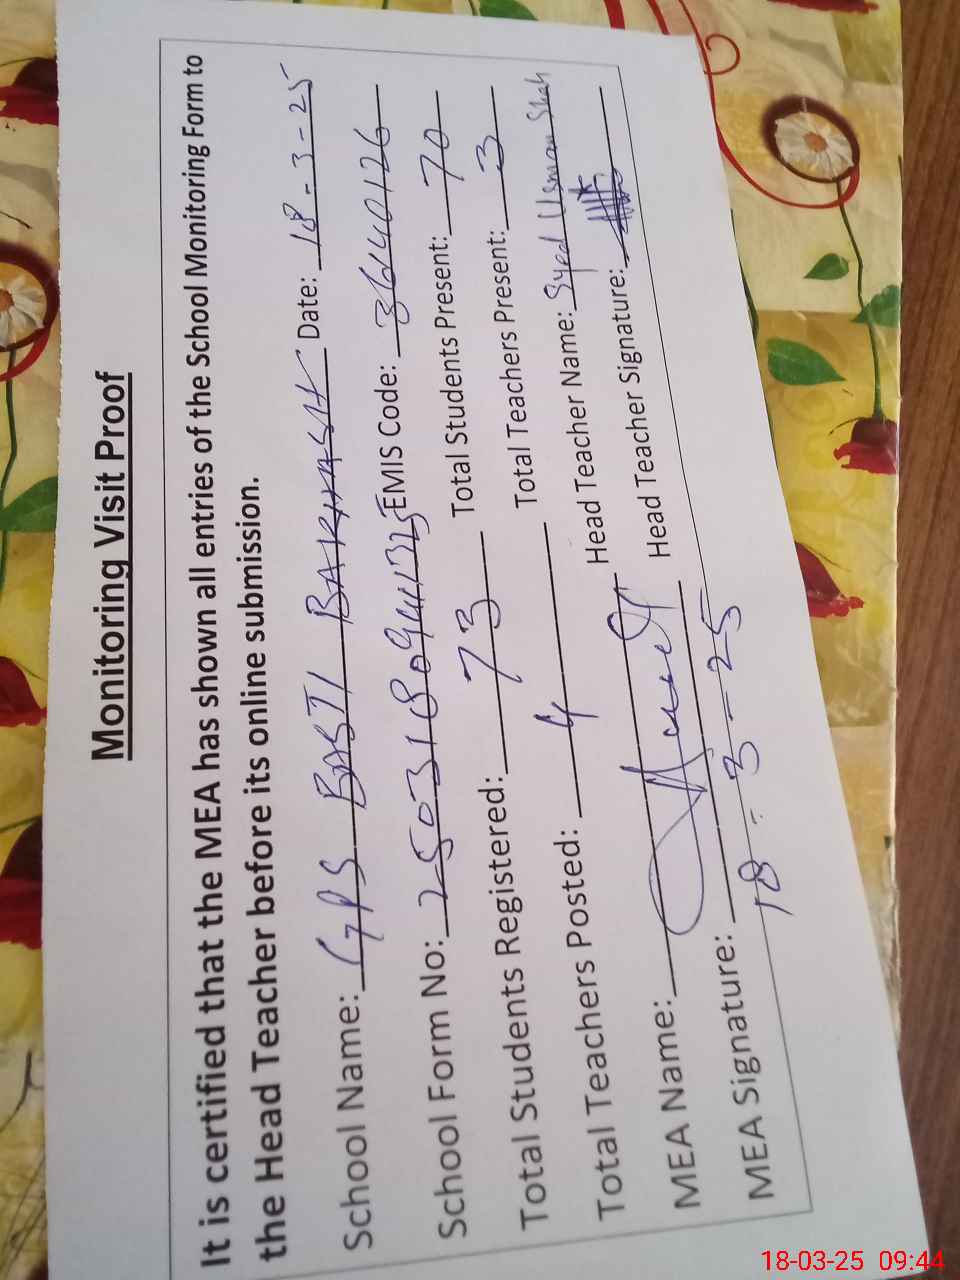 Monitoring Visit Proof
It is certified that the MEA has shown all entries of the School Monitoring Form to
the Head Teacher before its online submission.
School Name: GPS BASTI BAKHASH Date: 18-3-25
School Form No: EMIS Code: 36440126
Total Students Registered: 73 Total Students Present: 70
Total Teachers Posted: 4 Total Teachers Present: 3
MEA Name: Head Teacher Name: Syed Usman Shah
MEA Signature: Head Teacher Signature:
18-3-25
18-03-25 09:44